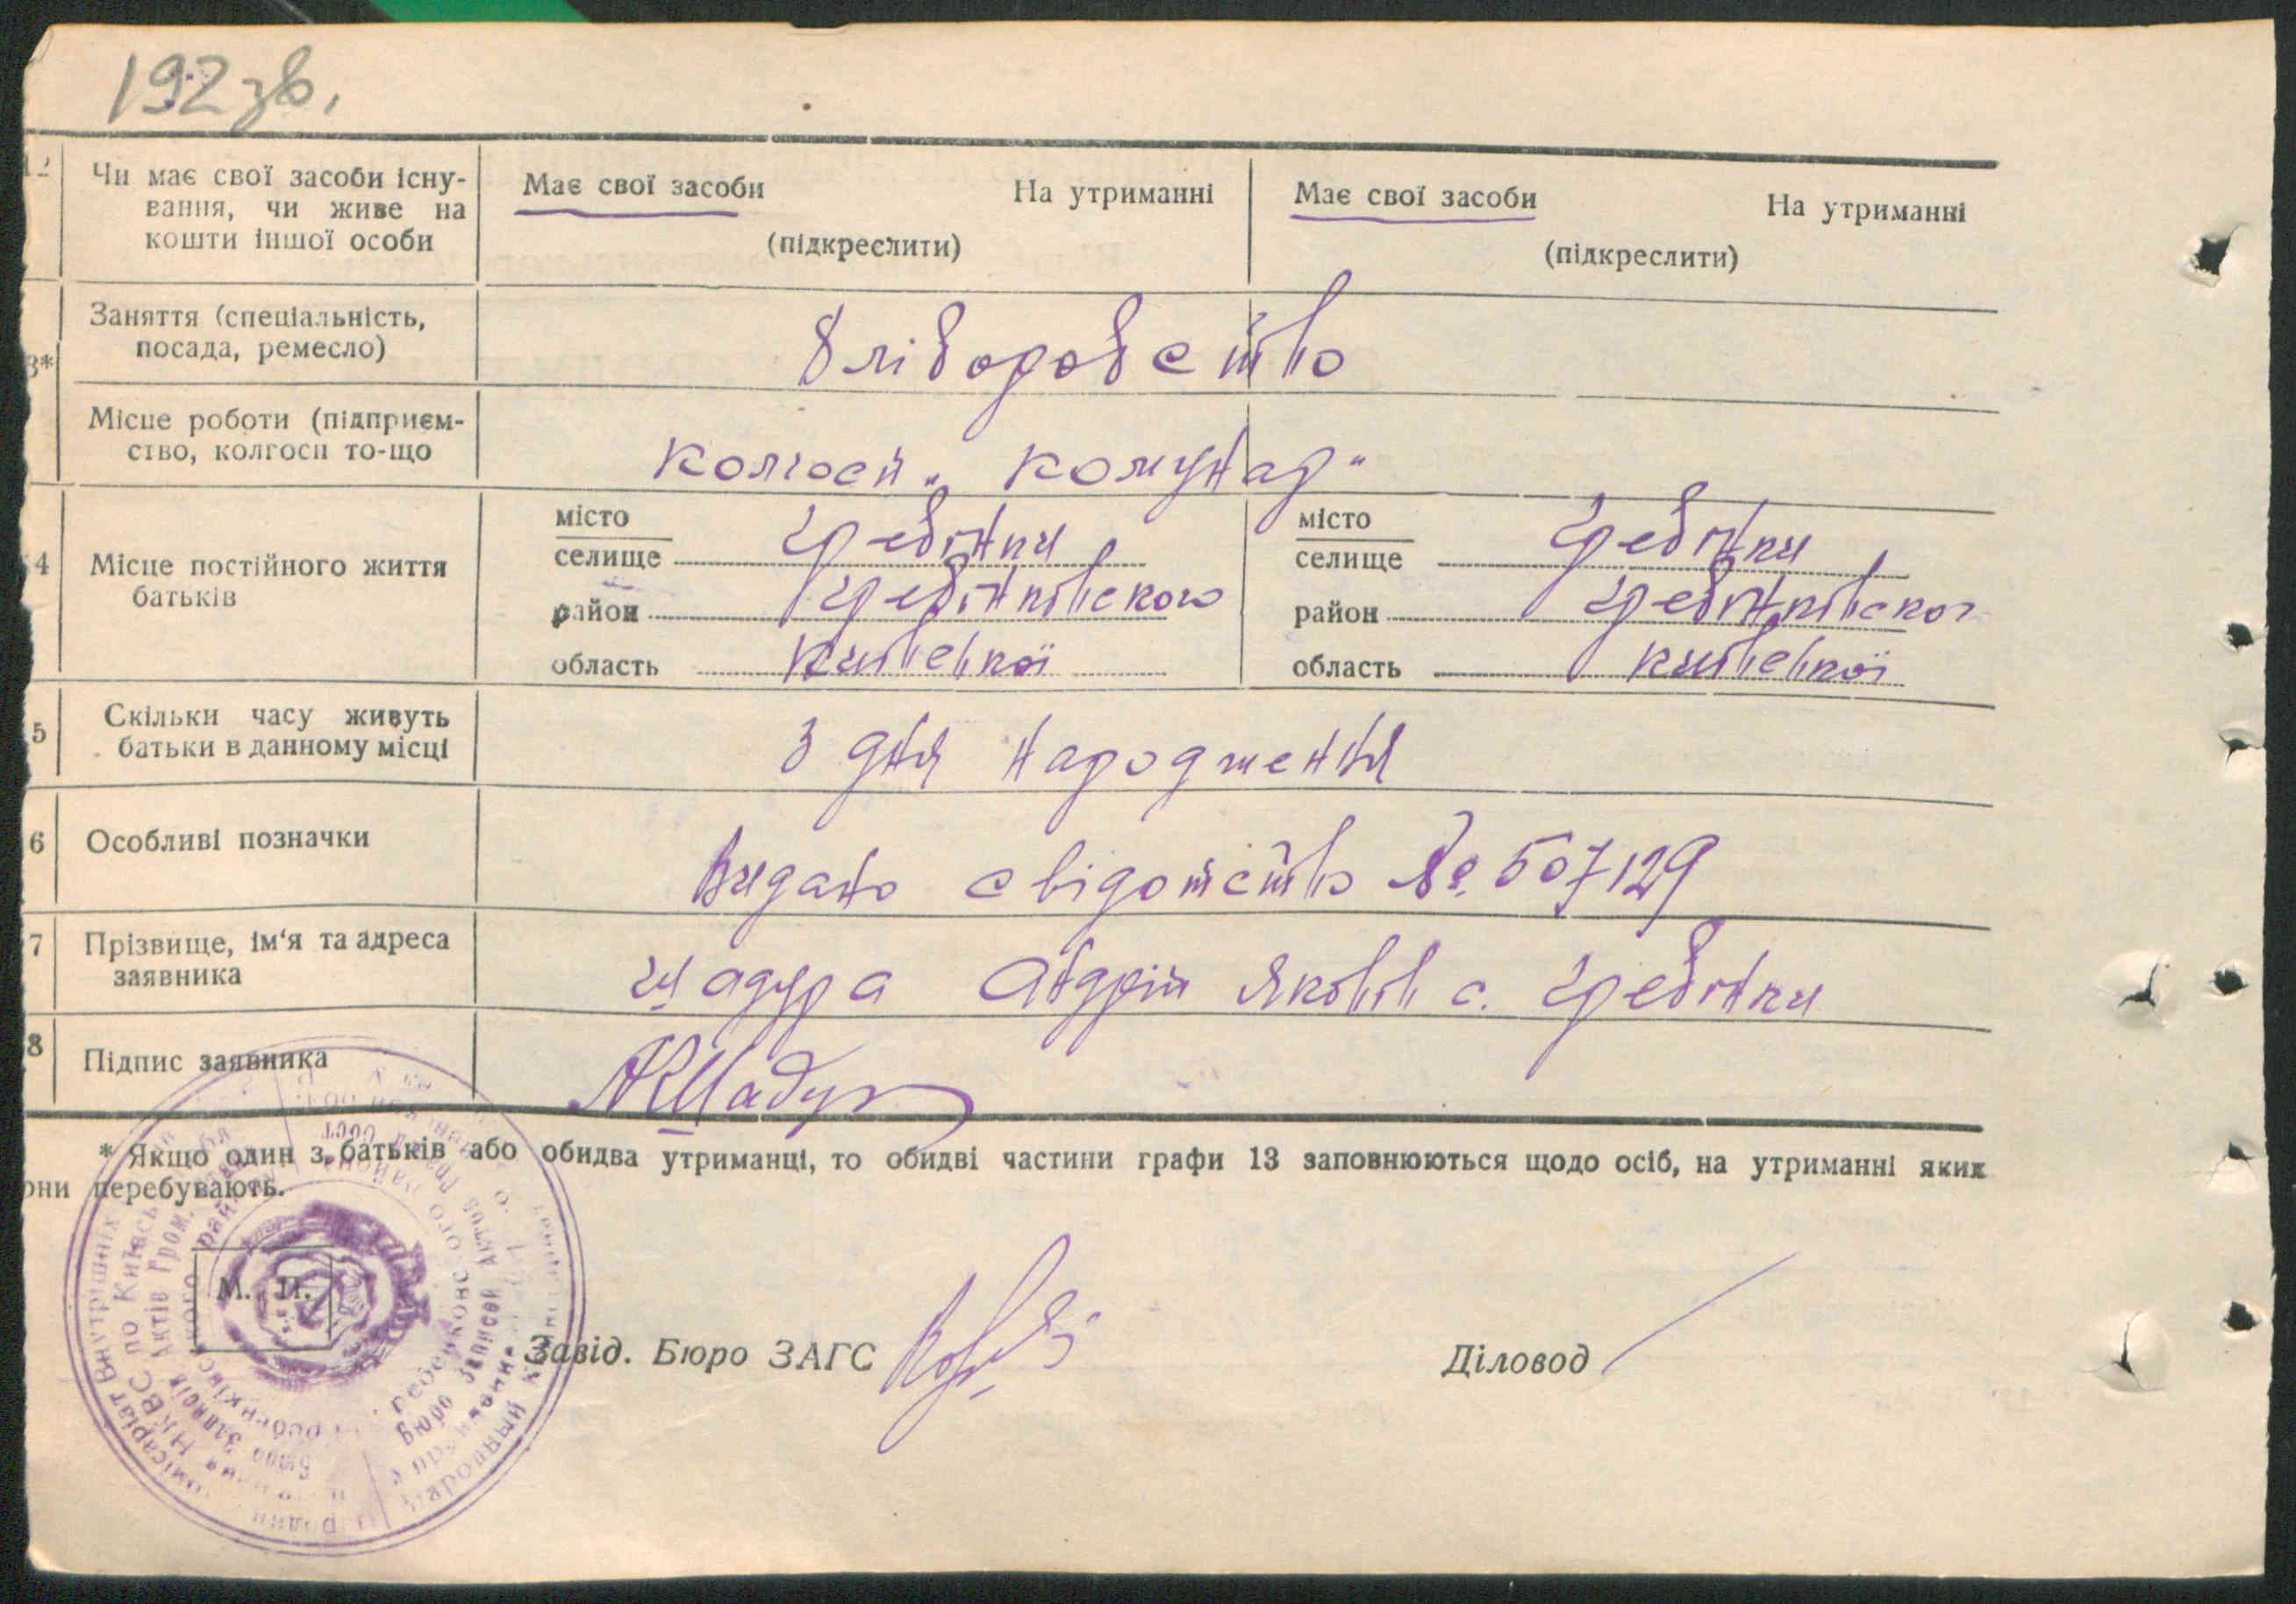 192зв.
12 Чи має свої засоби існу-
вання, чи живе на
кошти іншої особи
Має свої засоби На утриманні
(підкреслити)
Має свої засоби На утриманні
(підкреслити)
3*
Заняття (спеціальність,
посада, ремесло)
Хліборобство
Місце роботи (підприєм-
ство, колгосп то-що
колгосп „Комунар"
4 Місце постійного життя
батьків
місто
селище Гребінки
район Гребінківского
область Київської
місто
селище Гребінки
район Гребінківског
область Київської
5 Скільки часу живуть
батьки в данному місці
З дня народження
6 Особливі позначки
Видано свідотство № 507129
7 Прізвище, ім'я та адреса
заявника
Шадура Андрій Яков с. Гребінки
8 Підпис заявника
АЯШадур
* Якщо один з батьків або обидва утриманці, то обидві частини графи 13 заповнюються щодо осіб, на утриманні яких
они перебувають.
М. П.
Завід. Бюро ЗАГС
Діловод